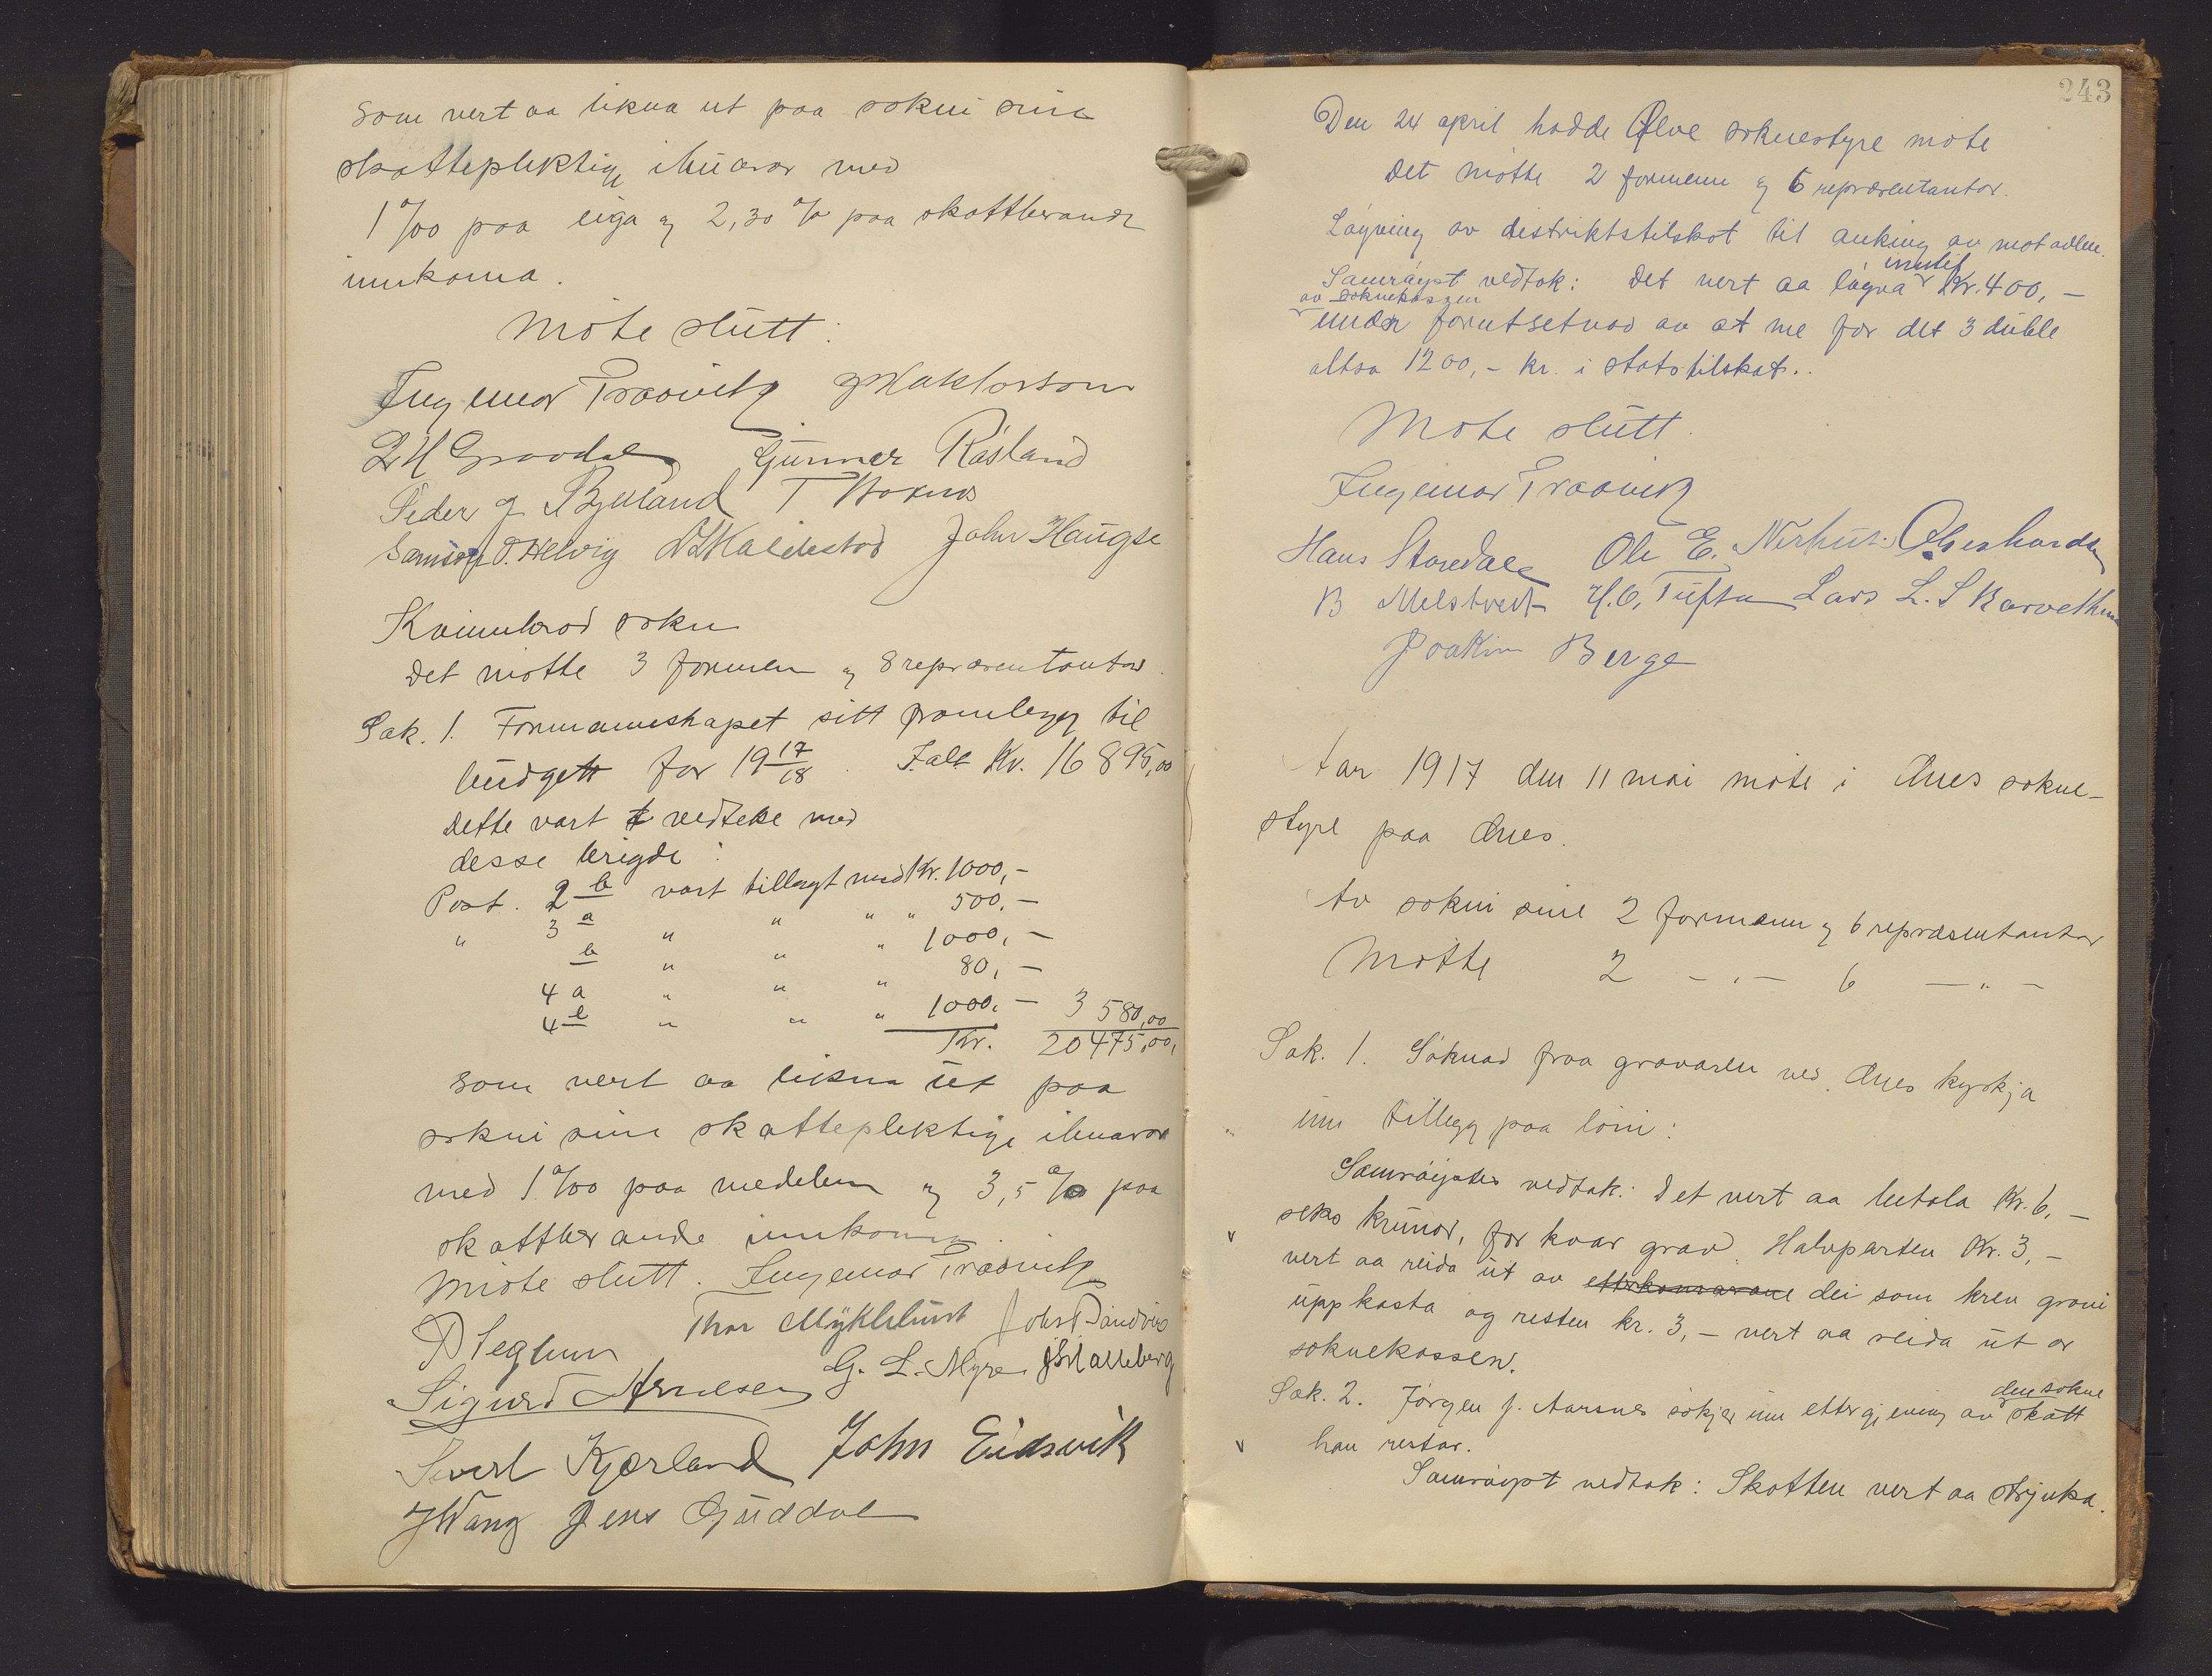 som vert aa likna ut paa sokni sine
skattepliktige ibuarar med
1 ‰ paa eiga og 2,30 % paa skattberande
innkoma.
Møte slutt.
Ingemar Traavik
Gunnar Røsland
Peder
Samson O. Helvig John Haugse
Kvinnherad sokn
Det møtte 3 formenn og 8 representantar.
Sak. 1. Formannskapet sitt framlegg til
budgett for 19 17/18. Ialt Kr. 16 895,00
Dette vart vedteke med
desse brigde:
Post. 2 b vart tillagt med Kr. 1000,-
" 3 a " " " " 500,-
b " " " 1000,-
4 a " " " 80,-
4 e " " " 1000,- 3 580,00
Kr. 20475,00,
som vert aa likna ut paa
sokni sine skattepliktige ibuarar
med 1 ‰ paa medelen og 3,5 % paa
skattberande innkoma.
Møte slutt. Ingemar Traavik
Thor Myklebust
G. L. Myre
Sigurd Arnesen
Sivert Kjærland John Eidsvik
Jens Guddal
243
Den 24 april hadde Ølve soknestyre møte
Det møtte 2 formenn og 6 representantar.
Løyving av distriktstilskot til auking av matavlen.
Samrøyst vedtok: Det vert aa løyva inntil Kr. 400,-
av soknekassen
under forutsetnad av at me fær det 3 duble
altsa 1200,- kr. i statstilskot..
Møte slutt.
Ingemar Traavik
Hans Storedale Ole E. Nerhus.
B Melstveit H.O. Tufta Lars L.
Joakim Berge
Aar 1917 den 11 mai møte i Ænes sokne-
styre paa Ænes.
Av sokni sine 2 formenn og 6 representantar
Møtte 2 - " - 6 - " -
Sak. 1. Søknad fraa gravaren ved Ænes kyrkja
um tillegg paa løni:
Samrøystes vedtak: Det vert aa betala Kr. 6,-
seks krunor, for kvar grav. Halvparten Kr. 3,-
vert aa reida ut av etterkomarane dei som krev gravi
uppkasta og resten kr. 3,- vert aa reida ut av
soknekassen.
Sak. 2. Jørgen J. Aarsnes søkjer um ettergjeving av den sokne
skatt
han restar.
Samrøyst vedtok: Skatten vert aa stryka.